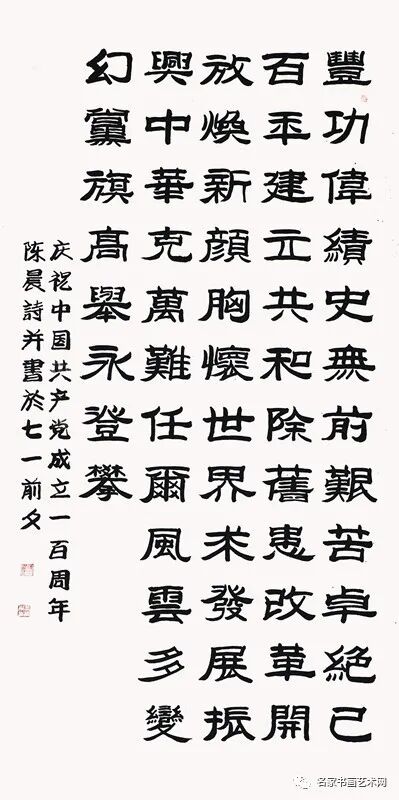 豐功偉績史無前艱苦卓絕己
百年建立共和除舊患改革開
放煥新顏胸懷世界求發展振
興中華克萬難任爾風雲多變
幻黨旗高舉永登攀
庆祝中国共产党成立一百周年
陈晨詩并書於七一前夕
名家书画艺术网